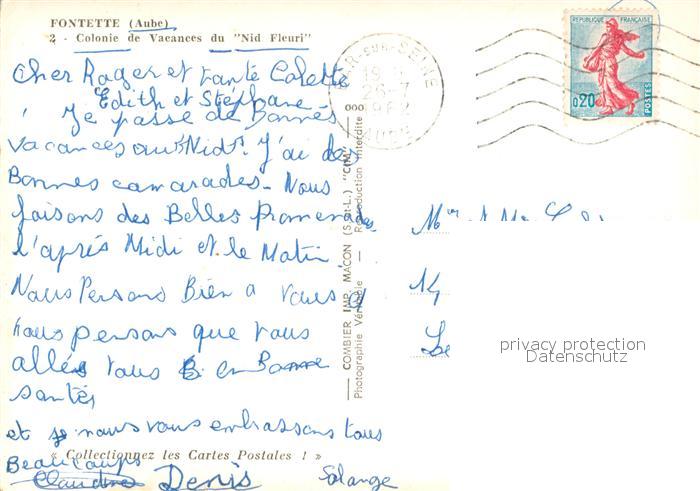 FONTETTE (Aube)
2 - Colonie de Vacances du "Nid Fleuri"
Cher Roger et tante Colette
Edith et Stéphane
Je passe de Bonnes
vacances au "Nid". J'ai des
Bonnes camarades. Nous
faisons des Belles Promenades
l'après Midi et le Matin.
Nous Pensons Bien a vous et
nous pensons que vous
allés tous en Bonne
santés
et je nous vous embrassons tous
« Collectionnez les Cartes Postales ! »
Beaucoups
Claudine Denis Solange
COMBIER IMP. MACON (S.-et-L.) "CIM"
Photographie Véritable — Reproduction Interdite
BAR-SUR-SEINE
26-7
1962
AUBE
REPUBLIQUE FRANÇAISE
0,20
POSTES
privacy protection
Datenschutz